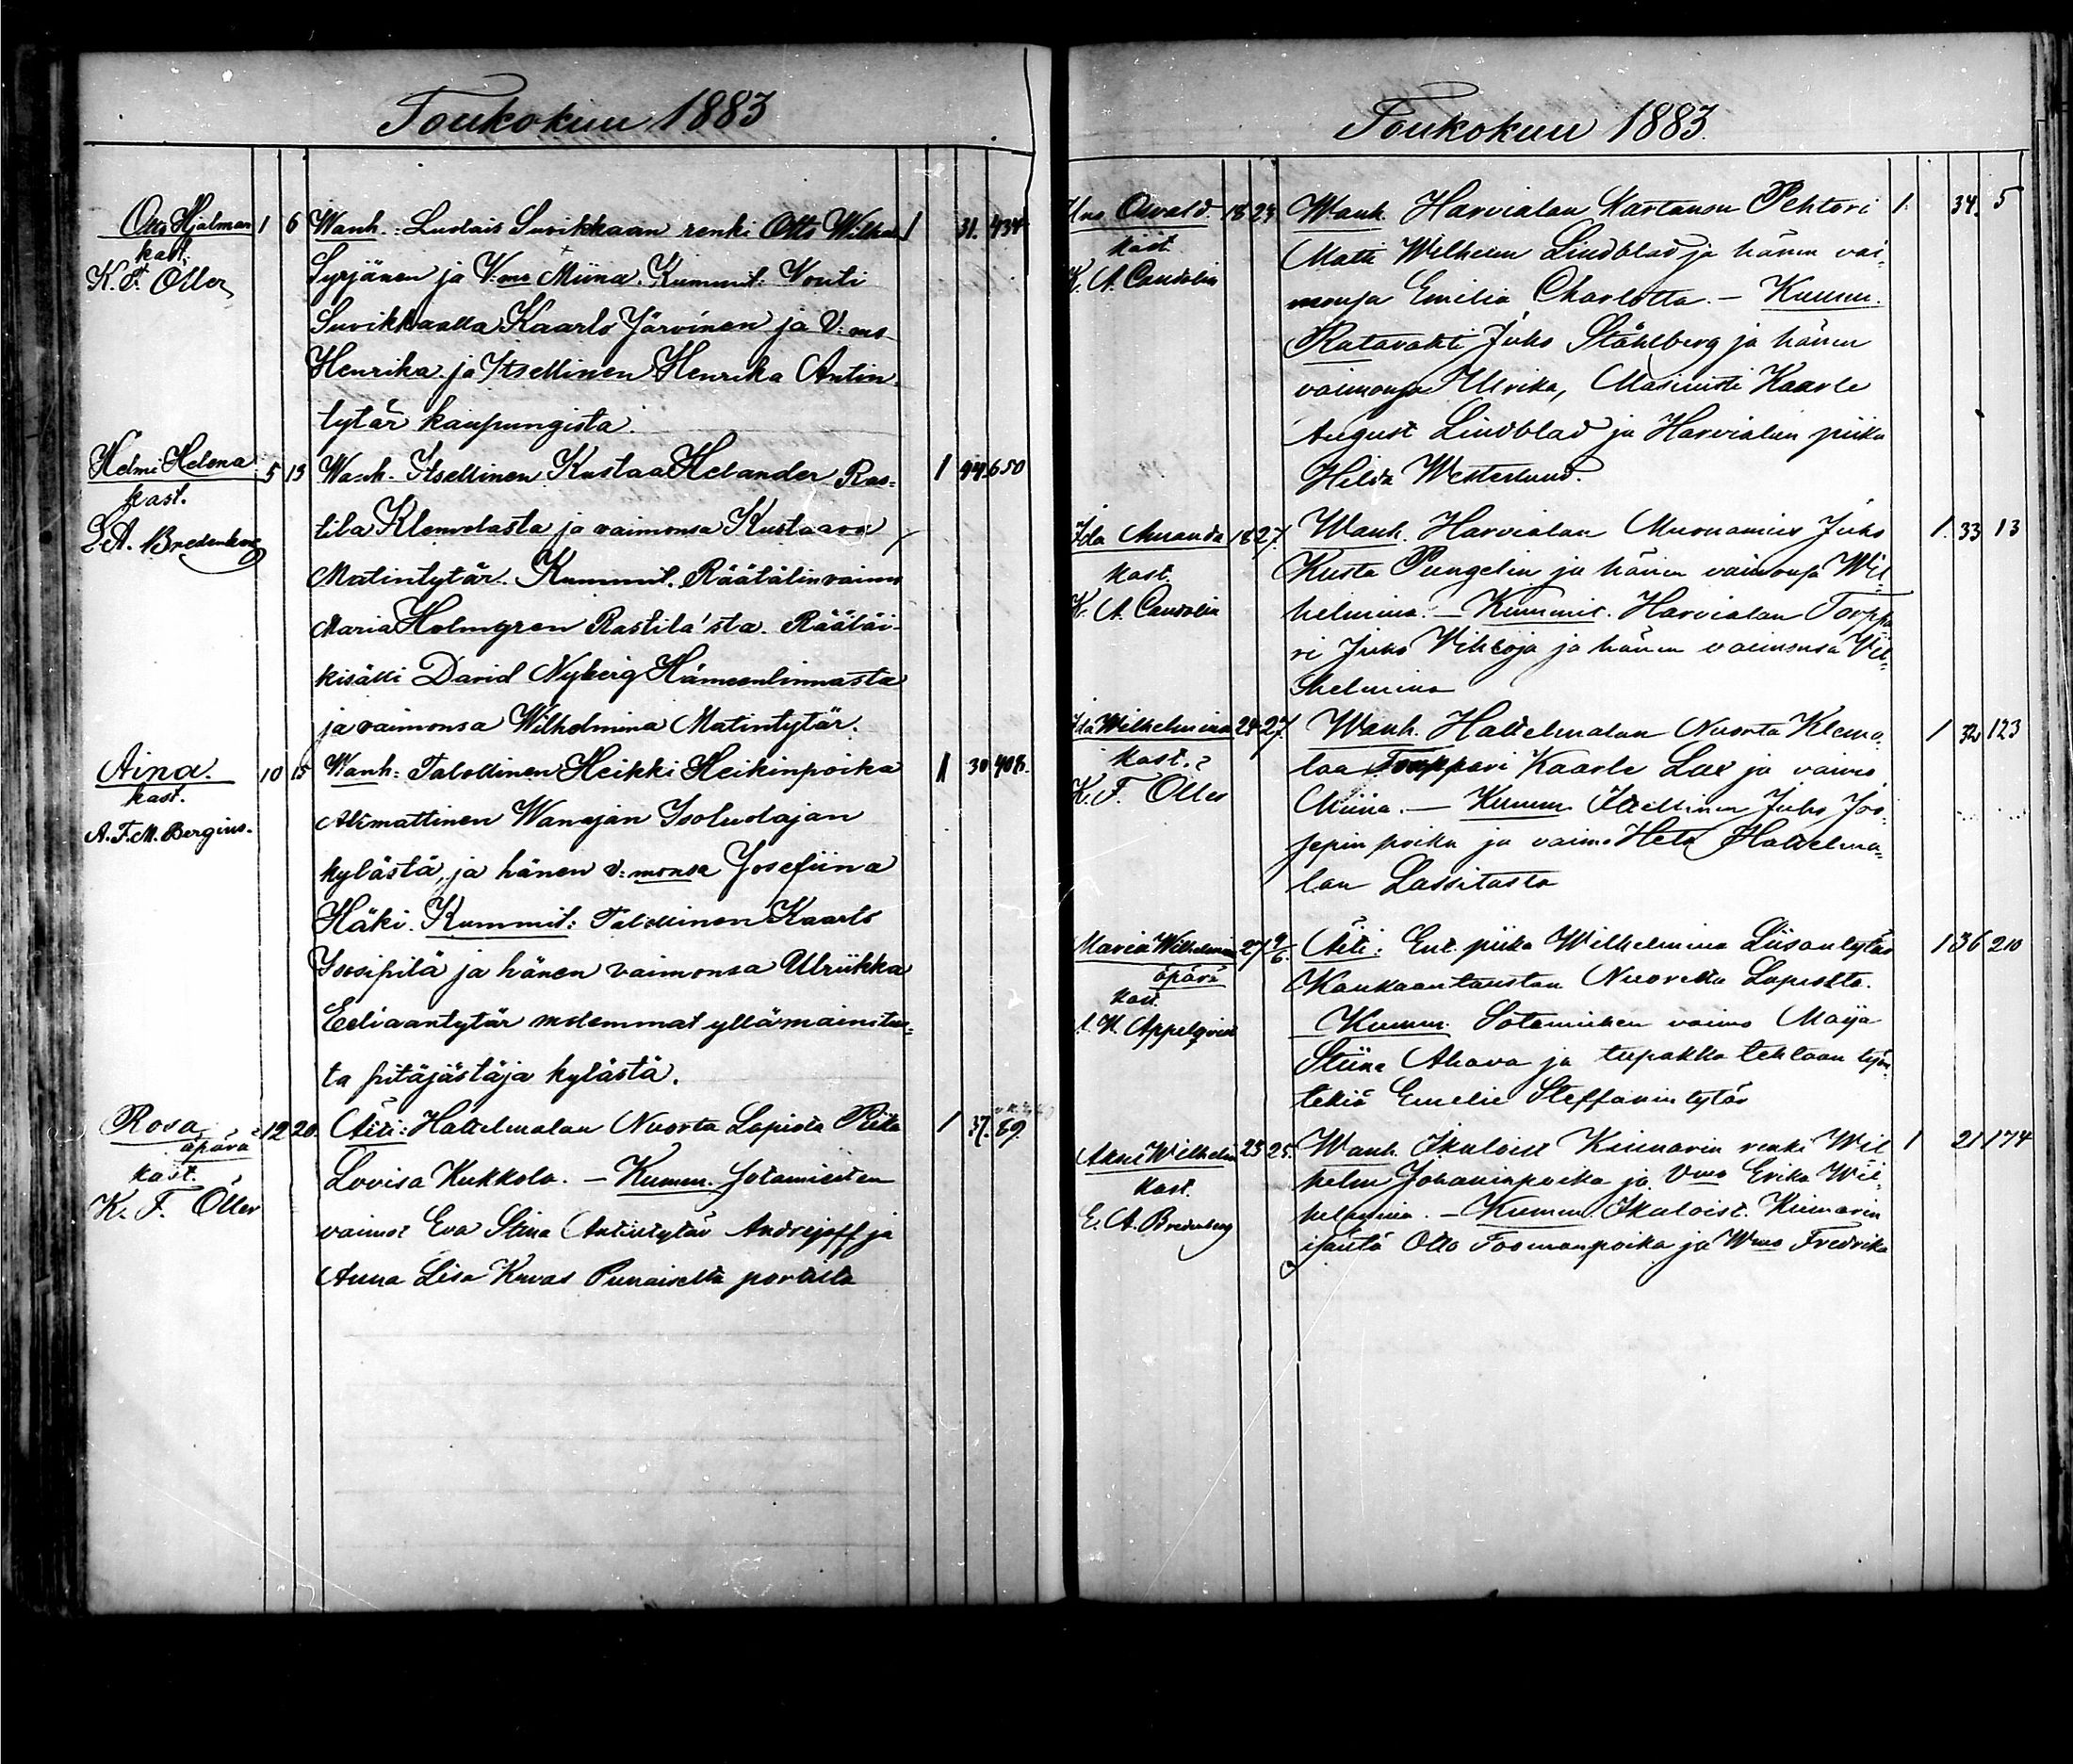 Toukokuu 1883
Otto Hjalmar 1 6 Wanh.: Ludais Suvikkaan renki Otto Wilhel 1 31. 434
kast. Syrjänen ja V:mo Miina. Kummit: Vouti
K. F. Öller Suvikkaalla Kaarlo Järvinen ja V:mo
Henrika ja Itsellinen Henrika Antin
tytär kaupungista.
Helmi Helena 5 13 Wanh. Itsellinen Kustaa Helander Ras= 1 44 650
kast. tila Klemolasta ja vaimonsa Kustaava
E. A. Bredenberg Matintytär. Kummit. Räätälinvaimo
Maria Holmgren Rastila'sta. Räätäi-
kisälli David Nyberg Hämeenlinnasta
ja vaimonsa Wilhelmina Matintytär.
Aina. 10 15 Wanh: Talollinen Heikki Heikinpoika 1 30 408.
kast. Alimattinen Wanajan
A. F. M. Bergius. kylästä, ja hänen v:monsa Josefiina
Häki. Kummit: Talollinen Kaarlo
ja hänen vaimonsa Ulriikka
Eeliaantytär molemmat yllämainitus=
ta pitäjästä ja kylästä.
Rosa 12 20. Äiti: Hattelmalan Nuorta Lapista Piika 1 37. 89.
äpärä
kast. Lovisa Kukkola. — Kumm. Sotamiesten
K. F. Öller vaimot Eva Stina Antintytär Andrejeff ja
Anna Lisa Kuvas Punaiselta portilta
Toukokuu 1883.
Uno Osvald. 18 23 Wanh. Harvialan Kartanon Pehtori 1. 34. 5
kast. Matti Wilhelm Lindblad ja hänen vai=
K. A. Candolin monsa Emilia Charlotta. — Kumm.
Ratavahti Juho Ståhlberg ja hänen
vaimonsa Ulrika, Masinisti Kaarle
August Lindblad ja Harvialan piika
Hilda Westerlund.
Ida Amanda 18 27. Wanh. Harvialan Muonamies Juho 1. 33 13
kast. Kusta Pungelin ja hänen vaimonsa Wil
K. A. Candolin helmina. — Kummit. Harvialan Torppa
ri Juho Vihtoja ja hänen vaimonsa Vil=
helmina
Ida Wilhelmina 24 27. Wanh. Hattelmalan Nuorta Klemo= 1 32 123
kast. laa Torppari Kaarle Lax ja vaimo
K. F. Öller Miina. — Kumm. Itsellinen Juho Joo=
sepin poika ja vaimo Heta Hattelma=
lan Lassilasta
Maria Wilhelmina 27 2/6. Äiti: Ent. piika Wilhelmina Liisantytär 1 36 210
äpärä Kankaantaustan Nuorelta Lapista.
kast.
Appelqvist Kumm. Sotamiehen vaimo Maija
Stiina Ahava ja tupakka tehtaan työn
tekiä Emelie Steffanintytär
Akseli Wilhelm 23 25. Wanh. Ikaloist Kiimarin renki Wil 1 21 174
kast. helm Johaninpoika ja Vmo Erika Wil=
E. A. Bredenberg helmina. — Kumm. Ikaloist. Kiimarin
isäntä Otto Toomanpoika ja Wmo Fredrika